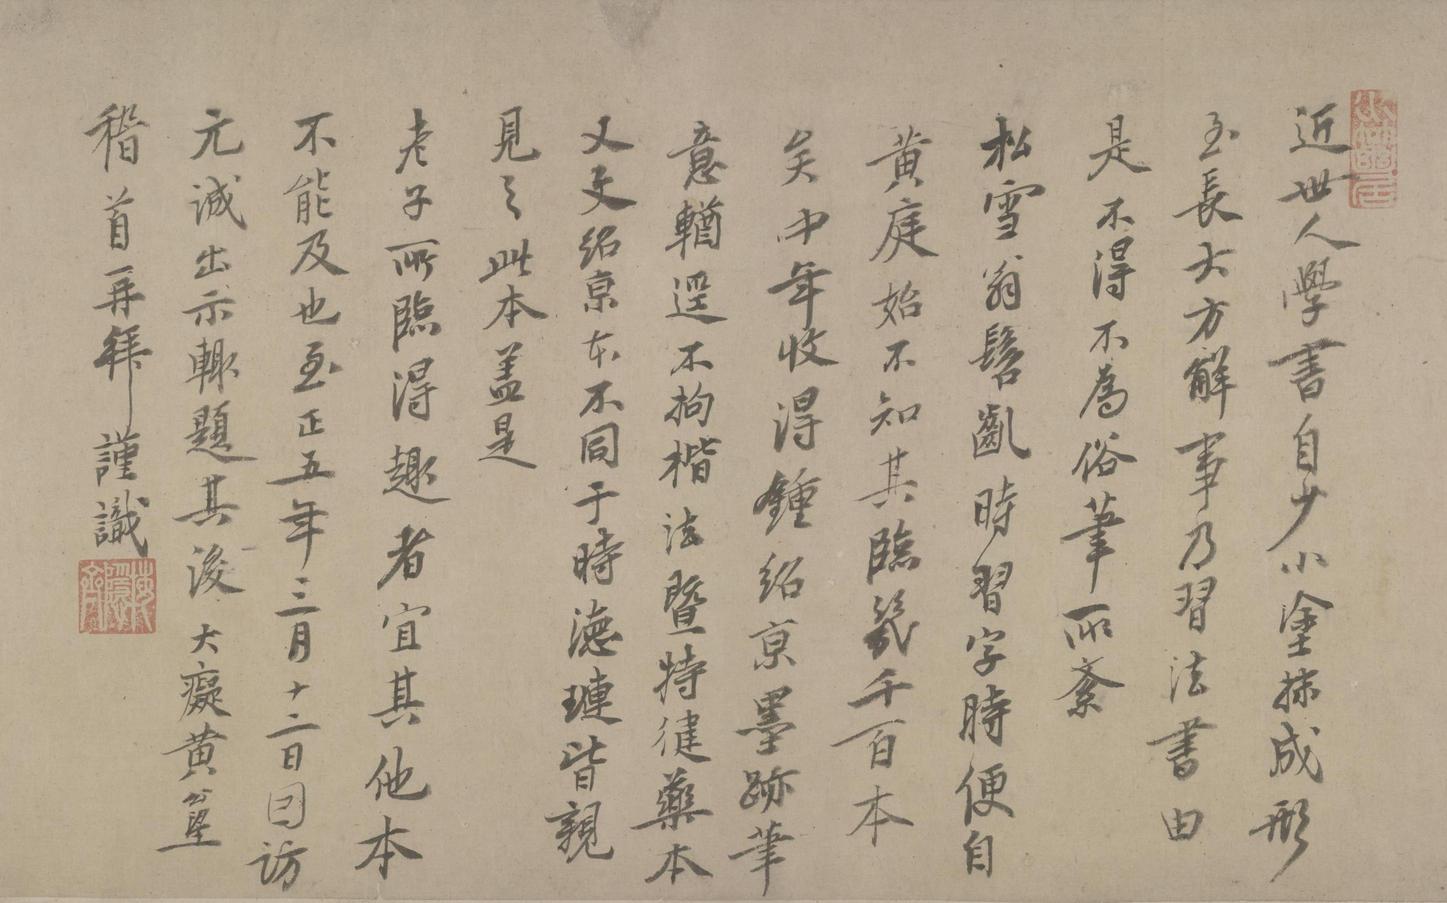 近世人學書自少小塗抹成形
至長大方解事乃習法書由
是不得不為俗筆所紊
松雪翁髫齔時習字時便自
黃庭始不知其臨幾千百本
矣中年收得鍾紹京墨跡筆
意輶逕不拘楷法暨特健藥本
又文紹京本不同于時德璉皆親
見之此本蓋是
老子所臨得趣者宜其他本
不能及也至正五年三月十二日因訪
元誠出示輒題其後大癡黃公望
稽首再拜謹識